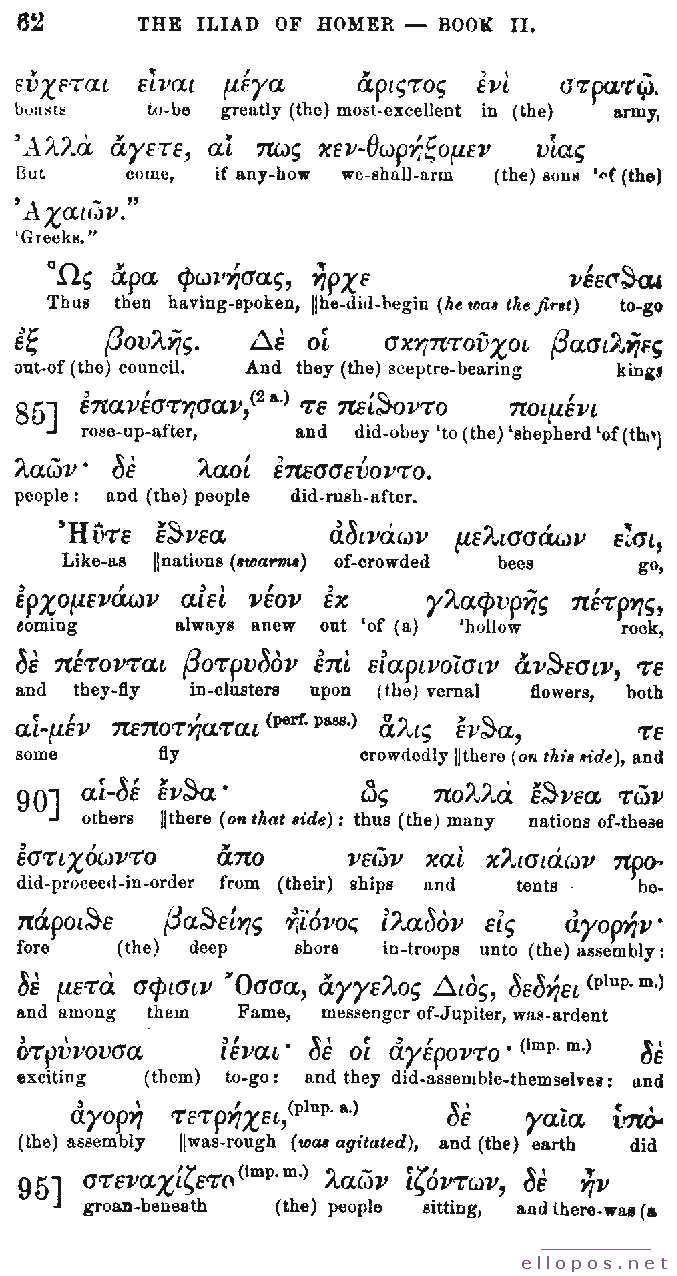 62 THE ILIAD OF HOMER — BOOK II.
εὔχεται εἶναι μέγα ἄριστος ἐνὶ στρατῷ.
boasts to-be greatly (the) most-excellent in (the) army,
Ἀλλὰ ἄγετε, αἴ πως κεν-θωρήξομεν υἷας
But come, if any-how we-shall-arm (the) sons 'of (the)
Ἀχαιῶν."
'Greeks."
Ὣς ἄρα φωνήσας, ἦρχε νέεσθαι
Thus then having-spoken, ||he-did-begin (he was the first) to-go
ἐξ βουλῆς. Δὲ οἱ σκηπτοῦχοι βασιλῆες
out-of (the) council. And they (the) sceptre-bearing kings
85] ἐπανέστησαν,(2 a.) τε πείθοντο ποιμένι
rose-up-after, and did-obey 'to (the) 'shepherd 'of (the)
λαῶν· δὲ λαοί ἐπεσσεύοντο.
people: and (the) people did-rush-after.
Ἠΰτε ἔθνεα ἀδινάων μελισσάων εἶσι,
Like-as ||nations (swarms) of-crowded bees go,
ἐρχομενάων αἰεὶ νέον ἐκ γλαφυρῆς πέτρης,
coming always anew out 'of (a) 'hollow rock,
δὲ πέτονται βοτρυδὸν ἐπὶ εἰαρινοῖσιν ἄνθεσιν, τε
and they-fly in-clusters upon (the) vernal flowers, both
αἱ-μέν πεποτήαται(perf. pass.) ἅλις ἔνθα, τε
some fly crowdedly ||there (on this side), and
90] αἱ-δέ ἔνθα· ὣς πολλὰ ἔθνεα τῶν
others ||there (on that side): thus (the) many nations of-these
ἐστιχόωντο ἄπο νεῶν καὶ κλισιάων προ-
did-proceed-in-order from (their) ships and tents be-
πάροιθε βαθείης ἠϊόνος ἰλαδὸν εἰς ἀγορήν·
fore (the) deep shore in-troops unto (the) assembly:
δὲ μετὰ σφισιν Ὄσσα, ἄγγελος Διὸς, δεδήει(plup. m.)
and among them Fame, messenger of-Jupiter, was-ardent
ὀτρύνουσα ἰέναι· δὲ οἱ ἀγέροντο·(imp. m.) δὲ
exciting (them) to-go: and they did-assemble-themselves: and
ἀγορὴ τετρήχει,(plup. a.) δὲ γαῖα ὑπὸ-
(the) assembly ||was-rough (was agitated), and (the) earth did
95] στεναχίζετο(imp. m.) λαῶν ἱζόντων, δὲ ἦν
groan-beneath (the) people sitting, and there-was (a
ellopos.net